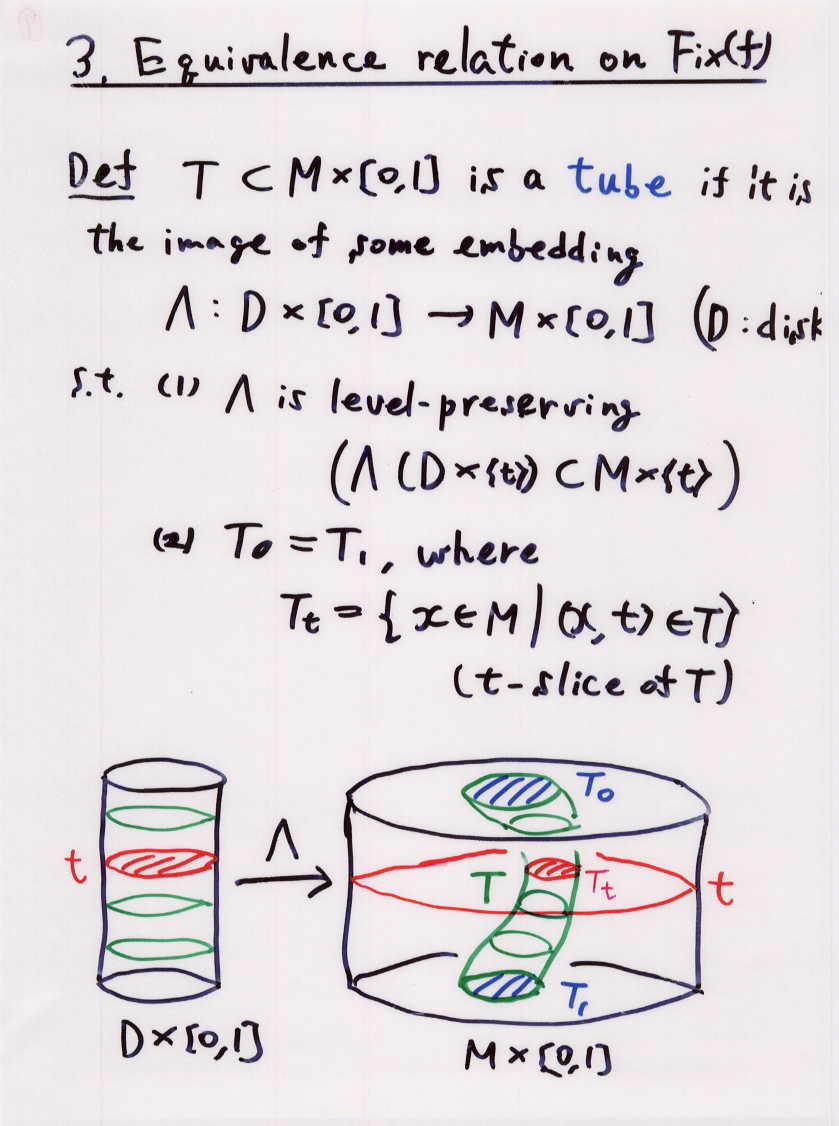 3. Equivalence relation on Fix(f)
Def T ⊂ M×[0,1] is a tube if it is
the image of some embedding
Λ : D × [0,1] → M × [0,1] (D : disk
s.t. (1) Λ is level-preserving
(Λ (D×{t}) ⊂ M×{t})
(2) T₀ = T₁, where
Tₜ = { x ∈ M | (x, t) ∈ T}
(t-slice of T)
T₀
Λ
t T Tₜ t
T₁
D×[0,1] M × [0,1]